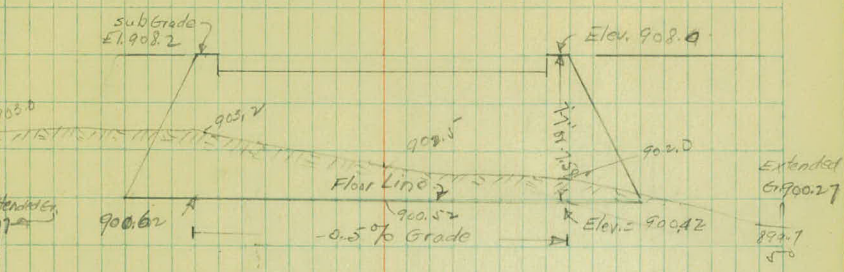 subGrade
El. 908.2
Elev. 908.0
903.0
903.2
902.5
902.0
Floor Line
Extended
Gr. 900.27
900.62
900.52
Elev. = 900.42
-0.5% Grade